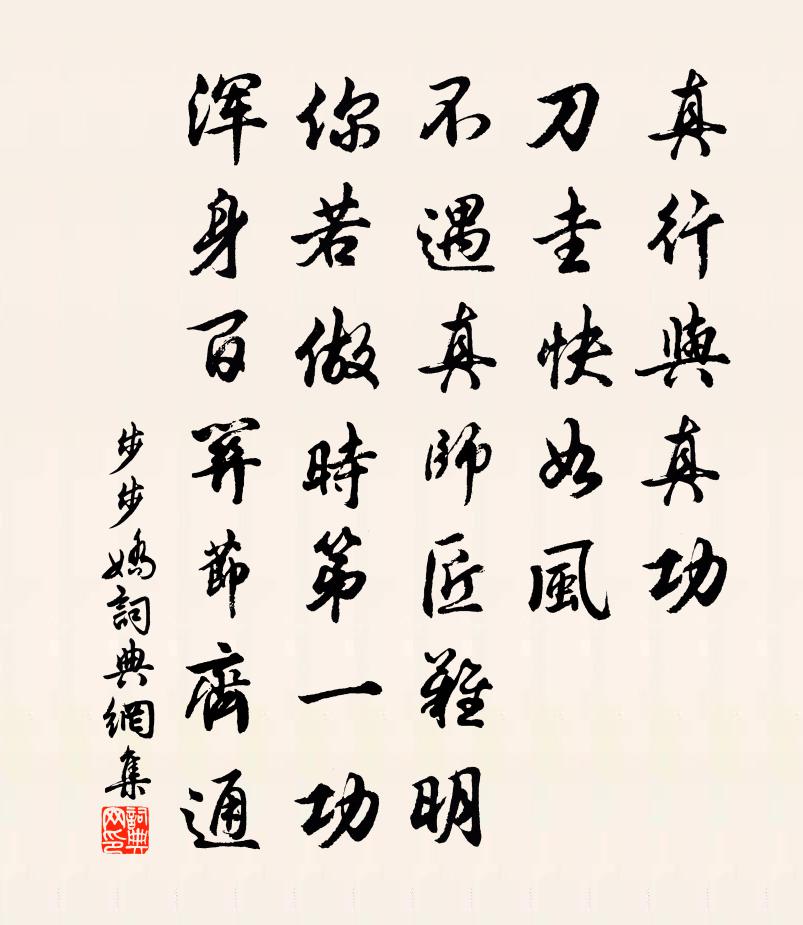 真行與真功
刀圭快如風
不遇真師匠難明
你若做時第一功
渾身百關節齊通
步步嬌詞典網集
詞典
网印